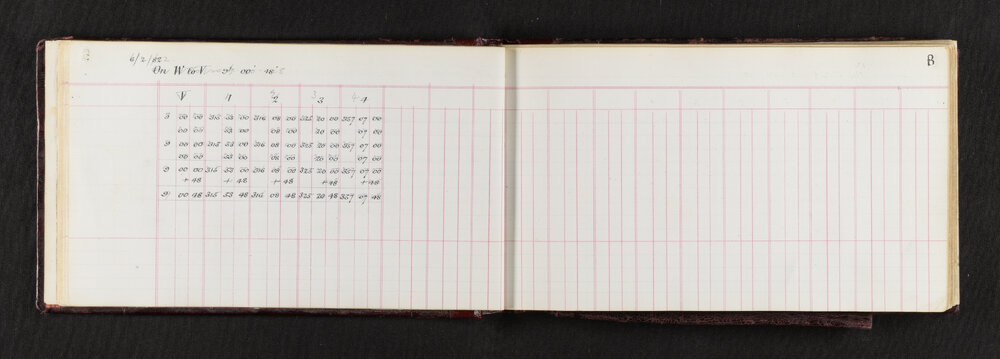 B
6/2/82
On W to V 9° 00' 48"
V 1 2 3 4
9 00 00 315 53 00 316 08 00 325 20 00 357 07 00
00 00 53 00 08 00 20 00 07 00
9 00 00 315 53 00 316 08 00 325 20 00 357 07 00
00 00 53 00 08 00 20 00 07 00
9 00 00 315 53 00 316 08 00 325 20 00 357 07 00
+48 +48 +48 +48 +48
9 00 48 315 53 48 316 08 48 325 20 48 357 07 48